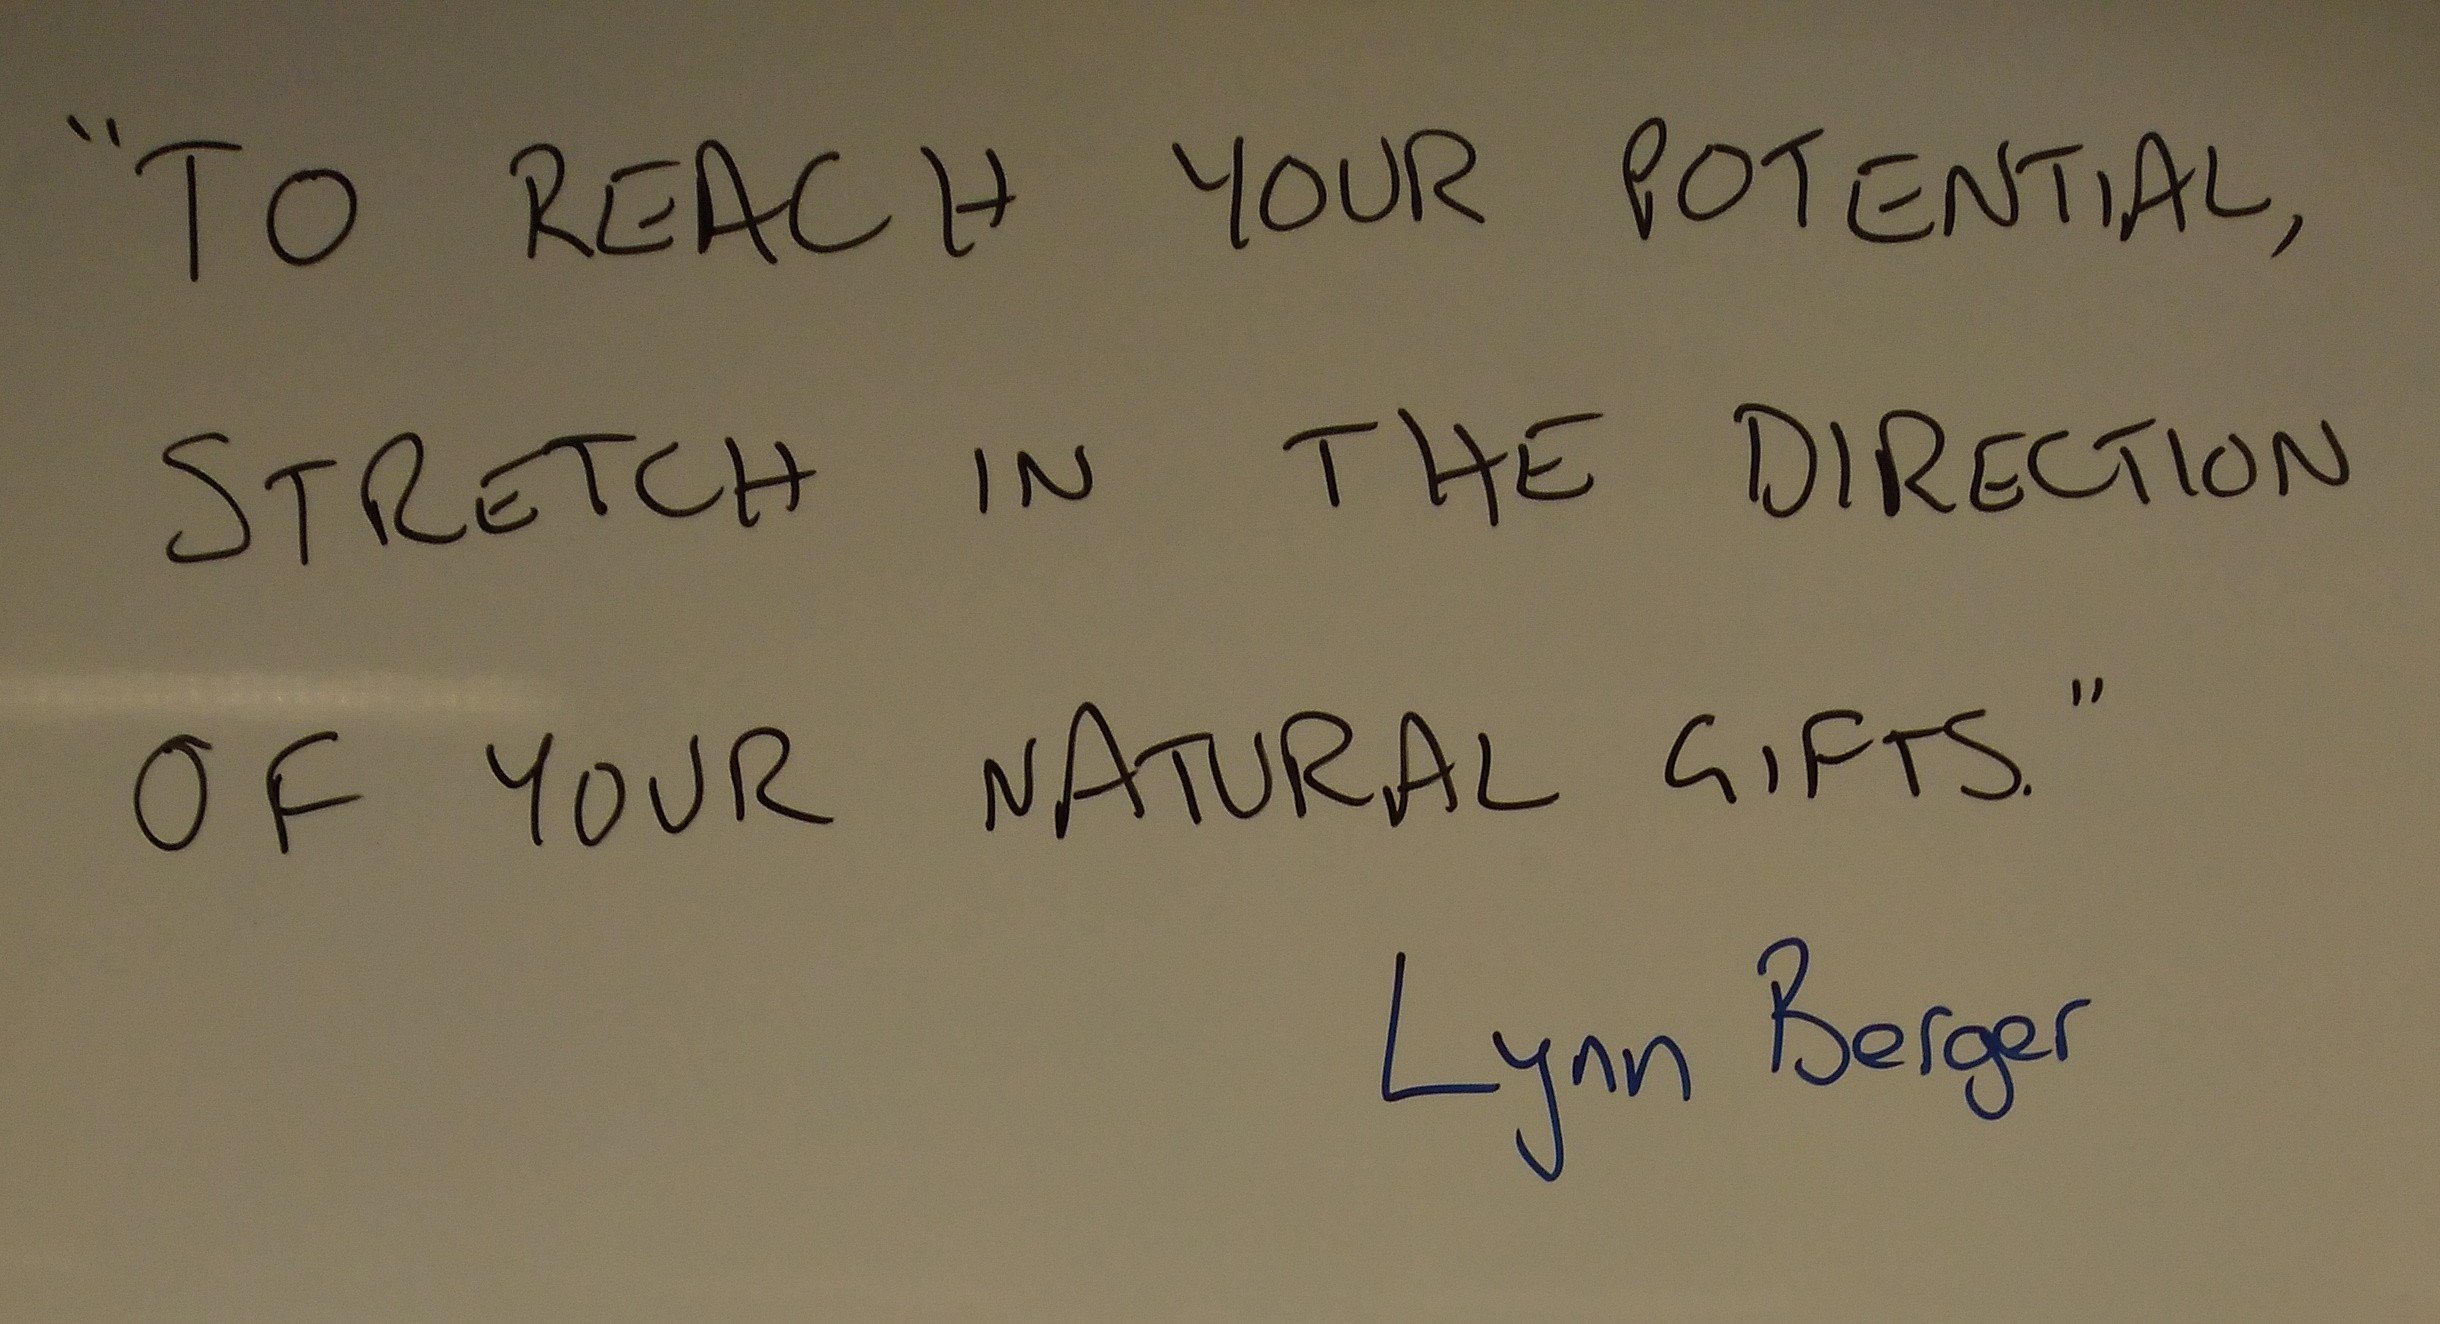 "TO REACH YOUR POTENTIAL,
STRETCH IN THE DIRECTION
OF YOUR NATURAL GIFTS."
Lynn Berger